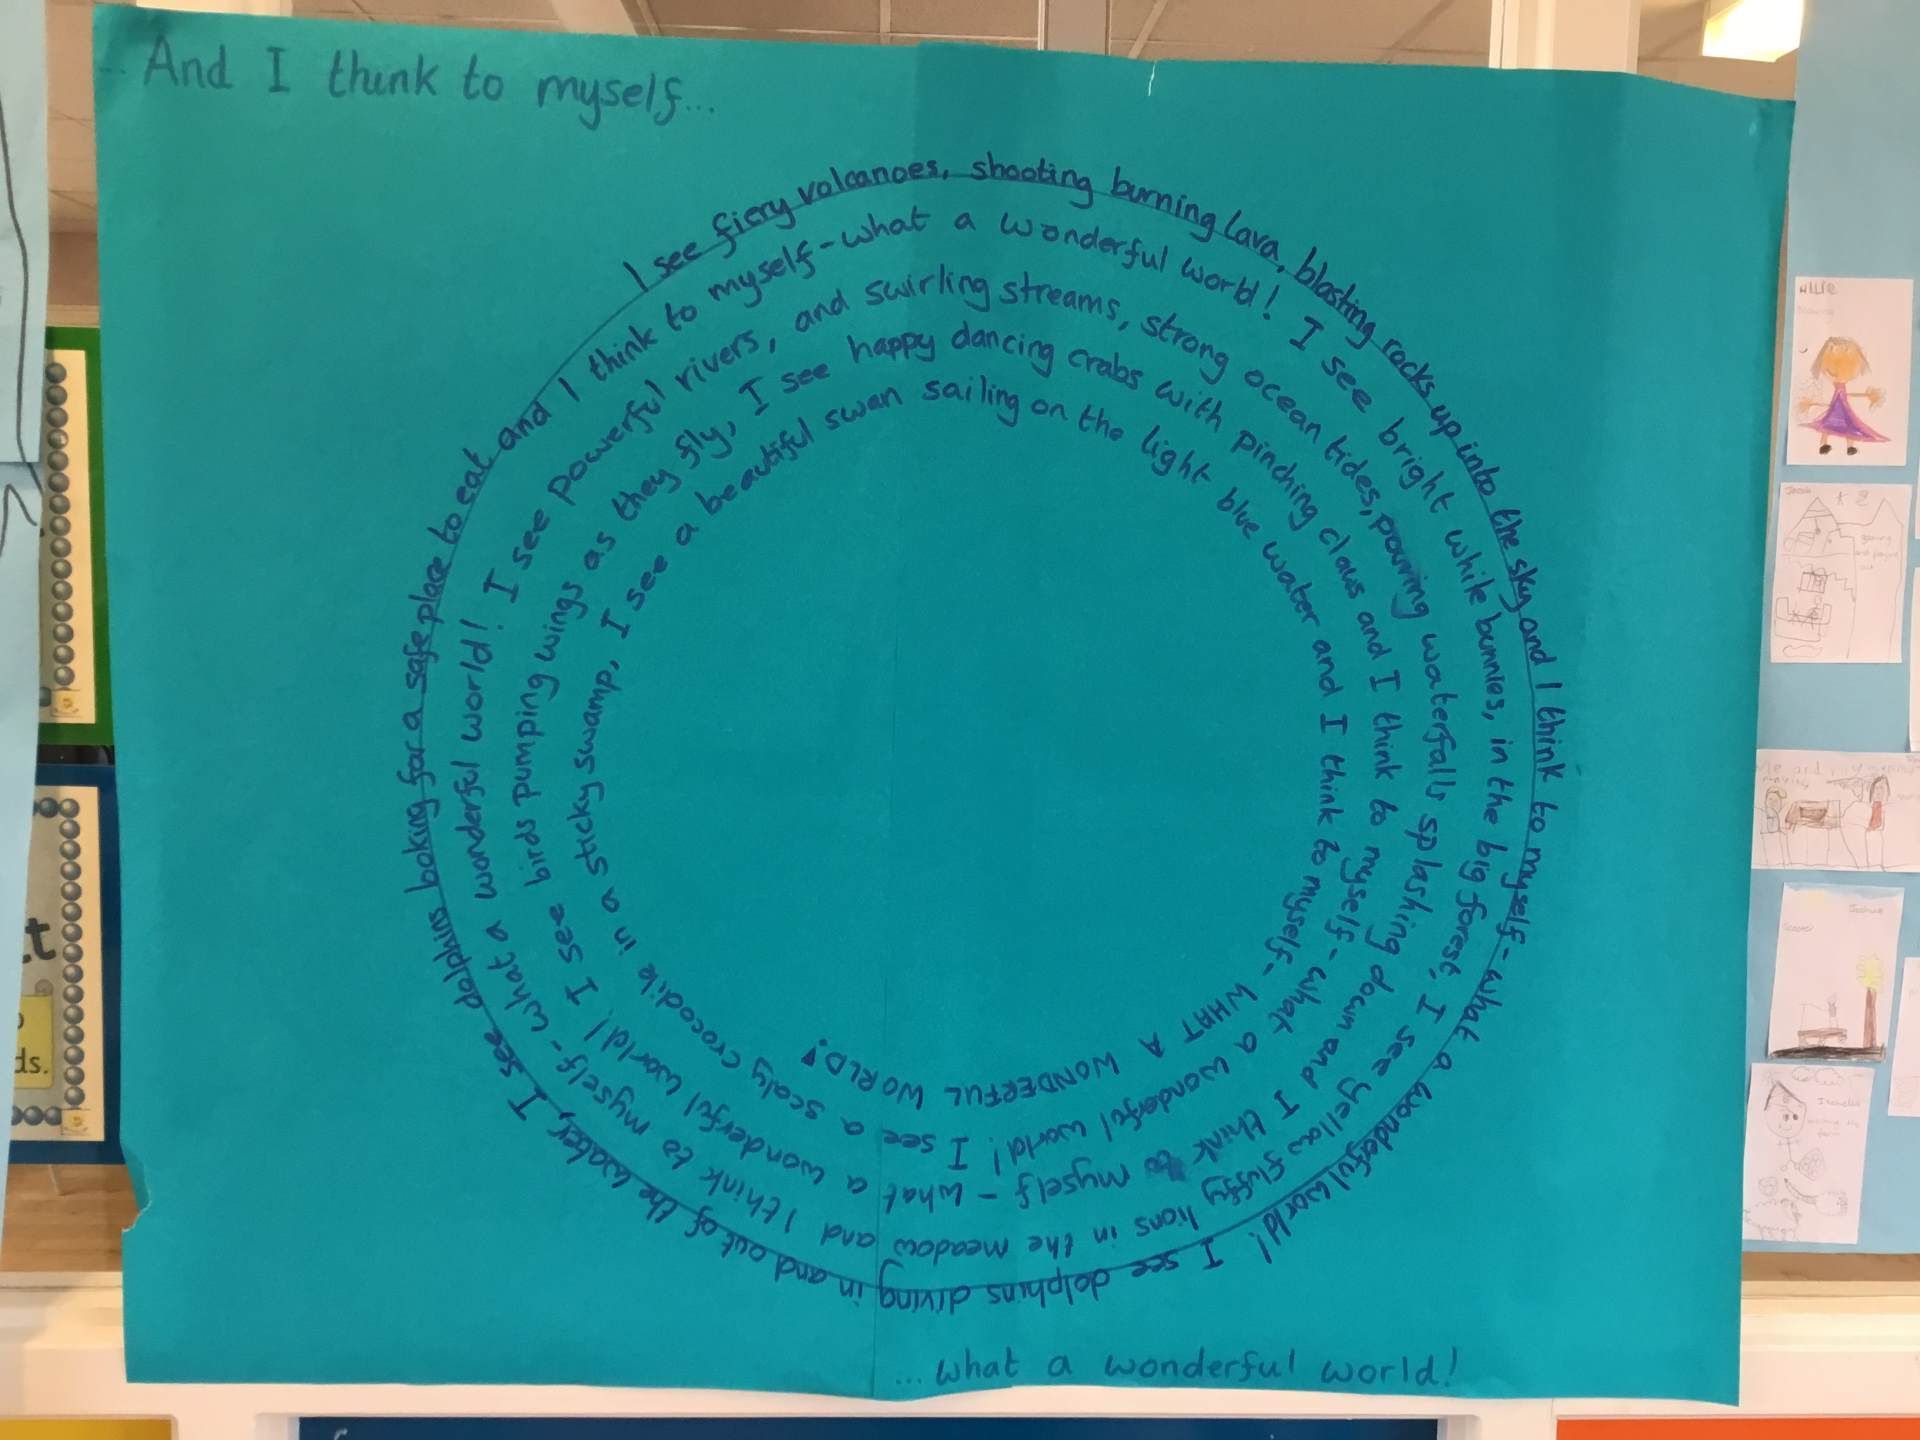 And I think to myself...
I see fiery volcanoes, shooting burning lava, blasting rocks up into the sky and I think to myself - what a wonderful world! I see dolphins diving in and out of the water, I see dolphins looking for a safe place to eat
and I think to myself - what a wonderful world! I see bright while bunnies, in the big forest, I see yellow fluffy lions in the meadow and I think to myself - what a wonderful world!
I see powerful rivers, and swirling streams, strong ocean tides, pouring waterfalls splashing down and I think to myself - what a wonderful world! I see birds pumping wings as they fly,
I see happy dancing crabs with pinching claws and I think to myself - what a wonderful world! I see a scaly crocodile in a sticky swamp,
I see a beautiful swan sailing on the light blue water and I think to myself - WHAT A WONDERFUL WORLD!
...what a wonderful world!
ds.
Jacob